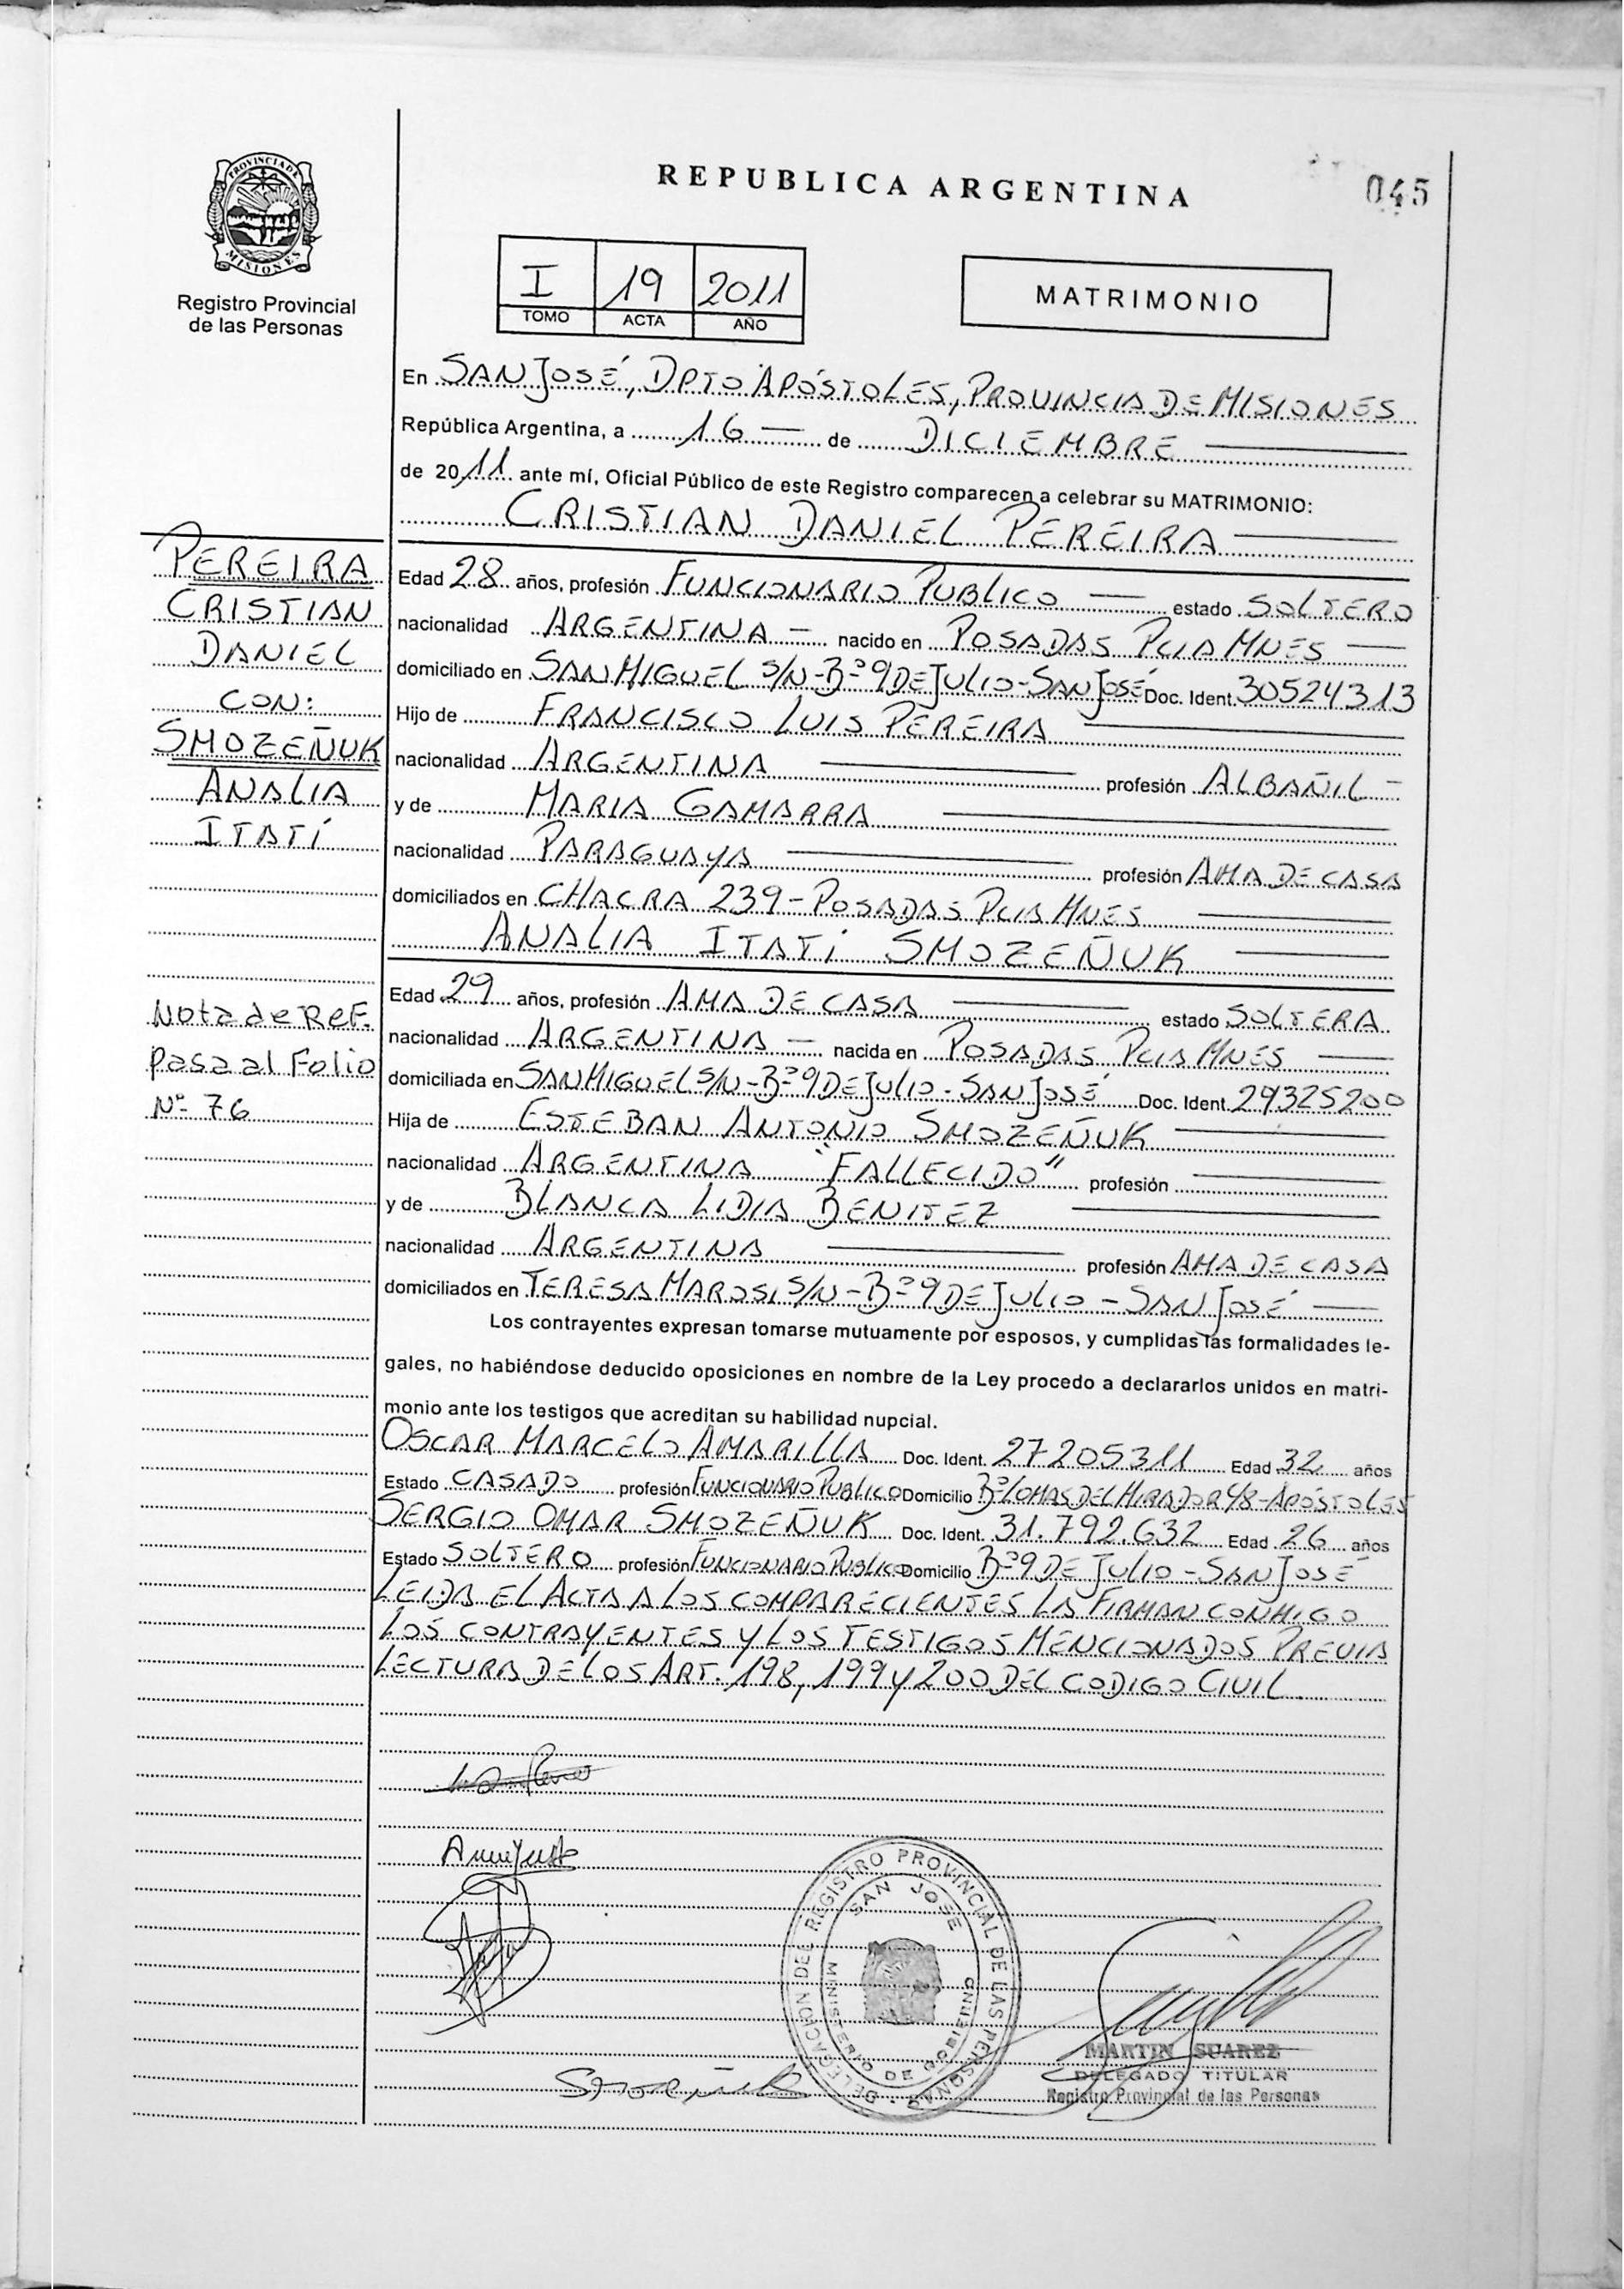 PROVINCIA DE
MISIONES
Registro Provincial
de las Personas
REPUBLICA ARGENTINA
045
I 19 2011
TOMO ACTA AÑO
MATRIMONIO
En SAN JOSÉ, DPTO APÓSTOLES, PROVINCIA DE MISIONES
República Argentina, a 16 — de DICIEMBRE —
de 2011 ante mí, Oficial Público de este Registro comparecen a celebrar su MATRIMONIO:
CRISTIAN DANIEL PEREIRA —
PEREIRA
CRISTIAN
DANIEL
CON:
SMOZEÑUK
ANALIA
ITATÍ
Nota de Ref.
pasa al Folio
Nº 76
Edad 28 años, profesión FUNCIONARIO PUBLICO — estado SOLTERO
nacionalidad ARGENTINA — nacido en POSADAS PCIA MNES —
domiciliado en SAN MIGUEL S/N - Bº 9 DE JULIO - SAN JOSÉ Doc. Ident. 30524313
Hijo de FRANCISCO LUIS PEREIRA —
nacionalidad ARGENTINA — profesión ALBAÑIL -
y de MARIA GAMARRA —
nacionalidad PARAGUAYA — profesión AMA DE CASA
domiciliados en CHACRA 239 - POSADAS PCIA MNES —
ANALIA ITATÍ SMOZEÑUK —
Edad 29 años, profesión AMA DE CASA — estado SOLTERA
nacionalidad ARGENTINA — nacida en POSADAS PCIA MNES —
domiciliada en SAN MIGUEL S/N - Bº 9 DE JULIO - SAN JOSÉ Doc. Ident. 29325200
Hija de ESTEBAN ANTONIO SMOZEÑUK —
nacionalidad ARGENTINA "FALLECIDO" profesión —
y de BLANCA LIDIA BENITEZ —
nacionalidad ARGENTINA — profesión AMA DE CASA
domiciliados en TERESA MAROSI S/N - Bº 9 DE JULIO - SAN JOSÉ —
Los contrayentes expresan tomarse mutuamente por esposos, y cumplidas las formalidades le-
gales, no habiéndose deducido oposiciones en nombre de la Ley procedo a declararlos unidos en matri-
monio ante los testigos que acreditan su habilidad nupcial.
OSCAR MARCELO AMARILLA Doc. Ident. 27205311 Edad 32 años
Estado CASADO profesión FUNCIONARIO PUBLICO Domicilio Bº LOMAS DEL MIRADOR 48 - APÓSTOLES
SERGIO OMAR SMOZEÑUK Doc. Ident. 31.792.632 Edad 26 años
Estado SOLTERO profesión FUNCIONARIO PUBLICO Domicilio Bº 9 DE JULIO - SAN JOSÉ
LEIDA EL ACTA A LOS COMPARECIENTES LA FIRMAN CONMIGO
LOS CONTRAYENTES Y LOS TESTIGOS MENCIONADOS PREVIA
LECTURA DE LOS ART. 198, 199 Y 200 DEL CODIGO CIVIL.
DELEGACION DEL REGISTRO PROVINCIAL DE LAS PERSONAS
SAN JOSE
MINISTERIO DE GOBIERNO
MARTIN SUAREZ
DELEGADO TITULAR
Registro Provincial de las Personas